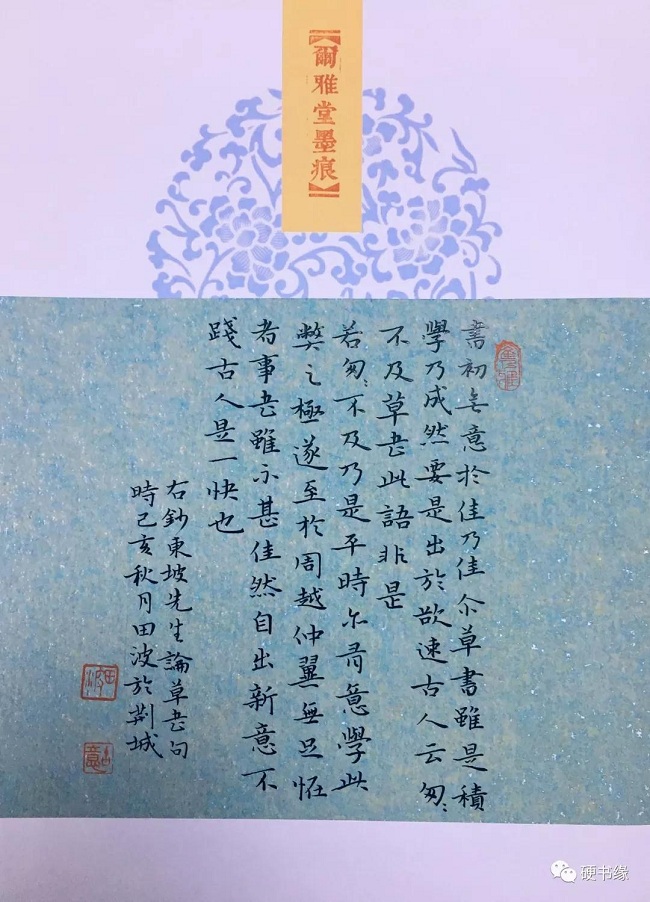 【爾雅堂墨痕】
書初无意於佳乃佳尒草書雖是積
學乃成然要是出於欲速古人云匆〻
不及草書此語非是
若匆〻不及乃是平時亦有意學此
弊之極遂至於周越仲翼無足怪
者事書雖不甚佳然自出新意不
踐古人是一快也
右鈔東坡先生論草書句
時己亥秋月田波於荆城
田波
硬书缘